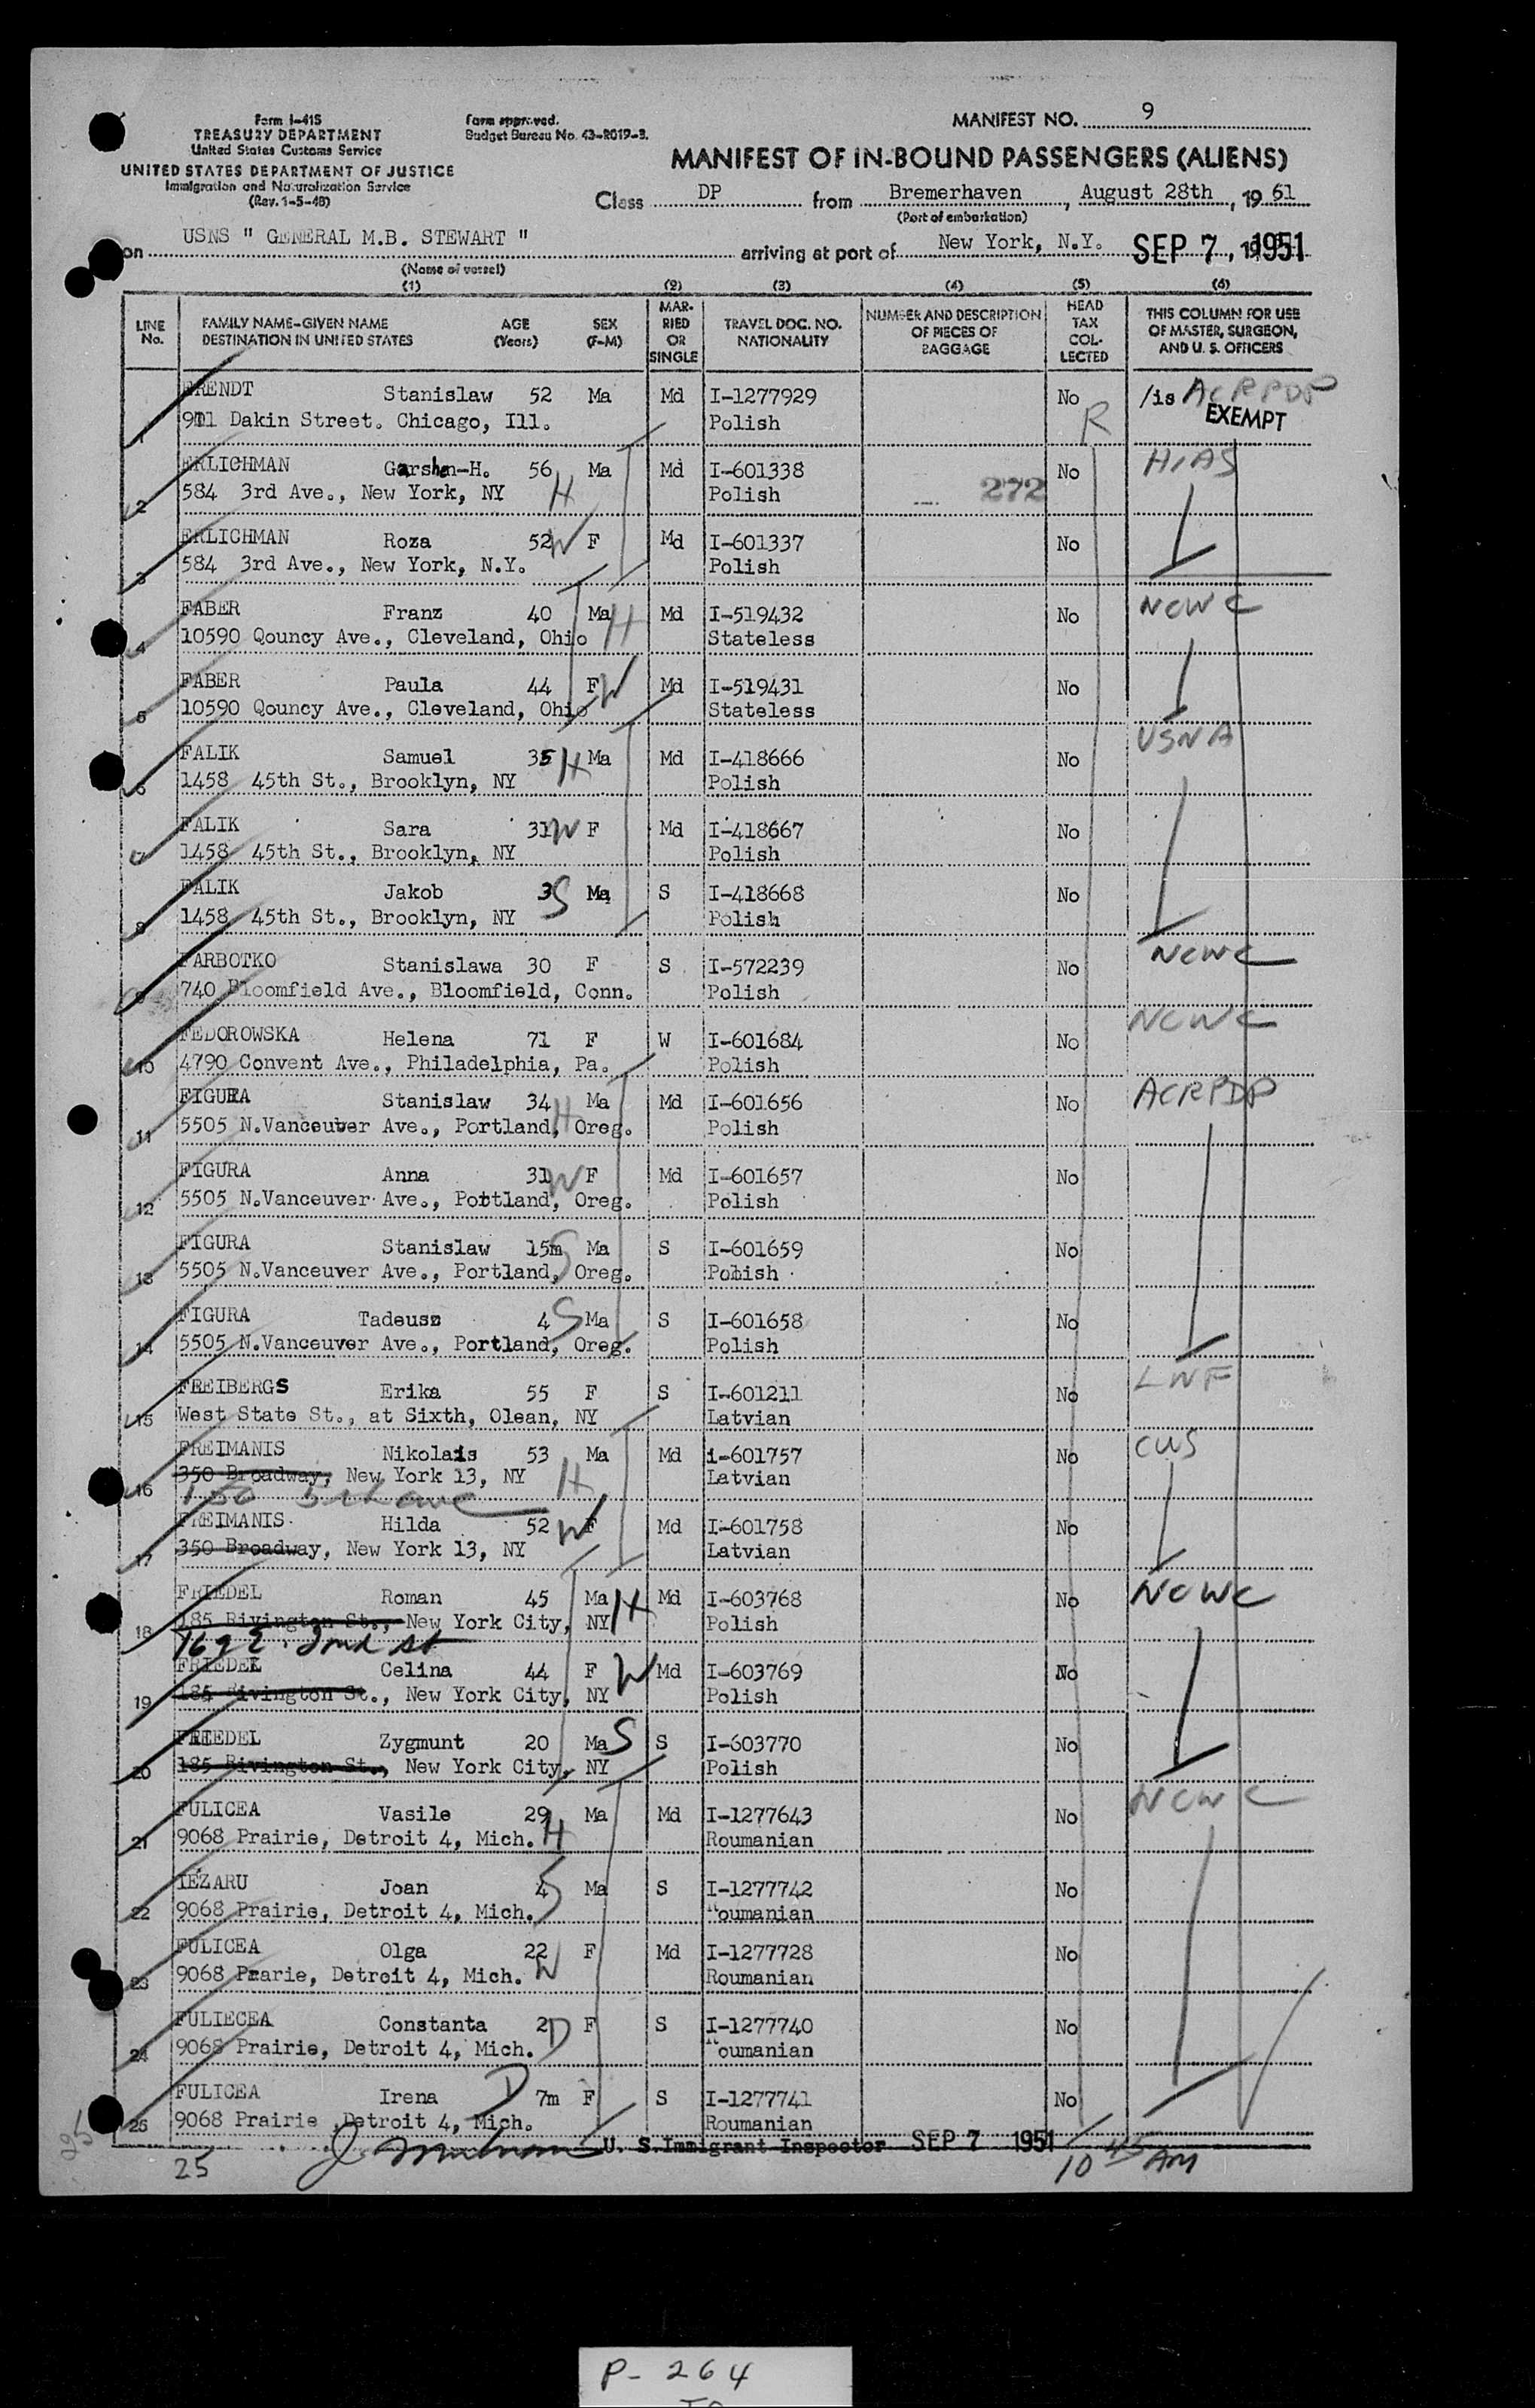 Form I-415
TREASURY DEPARTMENT
United States Customs Service
UNITED STATES DEPARTMENT OF JUSTICE
Immigration and Naturalization Service
(Rev. 1-5-48)
Form approved.
Budget Bureau No. 43-R019-3.
MANIFEST NO. 9
MANIFEST OF IN-BOUND PASSENGERS (ALIENS)
Class DP from Bremerhaven, August 28th, 19 51
(Port of embarkation)
on USNS " GENERAL M.B. STEWART " arriving at port of New York, N.Y. SEP 7, 1951
(Name of vessel)
(1) (2) (3) (4) (5) (6)
LINE No. FAMILY NAME-GIVEN NAME DESTINATION IN UNITED STATES AGE (Years) SEX (F-M) MARRIED OR SINGLE TRAVEL DOC. NO. NATIONALITY NUMBER AND DESCRIPTION OF PIECES OF BAGGAGE HEAD TAX COLLECTED THIS COLUMN FOR USE OF MASTER, SURGEON, AND U. S. OFFICERS
1 ERENDT Stanislaw 52 Ma Md I-1277929 No /is ACRPDP
911 Dakin Street. Chicago, Ill. Polish R EXEMPT
2 ERLICHMAN Gershen-H. 56 Ma Md I-601338 No HIAS
584 3rd Ave., New York, NY H Polish 272
3 ERLICHMAN Roza 52 W F Md I-601337 No
584 3rd Ave., New York, N.Y. Polish
4 FABER Franz 40 Ma H Md I-519432 No NCWC
10590 Qouncy Ave., Cleveland, Ohio Stateless
5 FABER Paula 44 F W Md I-519431 No
10590 Qouncy Ave., Cleveland, Ohio Stateless
6 FALIK Samuel 35 H Ma Md I-418666 No USNA
1458 45th St., Brooklyn, NY Polish
7 FALIK Sara 31 W F Md I-418667 No
1458 45th St., Brooklyn, NY Polish
8 FALIK Jakob 3 S Ma S I-418668 No
1458 45th St., Brooklyn, NY Polish
9 FARBOTKO Stanislawa 30 F S I-572239 No NCWC
740 Bloomfield Ave., Bloomfield, Conn. Polish
10 FEDOROWSKA Helena 71 F W I-601684 No NCWC
4790 Convent Ave., Philadelphia, Pa. Polish
11 FIGURA Stanislaw 34 H Ma Md I-601656 No ACRPDP
5505 N.Vanceuver Ave., Portland, Oreg. Polish
12 FIGURA Anna 31 W F Md I-601657 No
5505 N.Vanceuver Ave., Portland, Oreg. Polish
13 FIGURA Stanislaw 15m S Ma S I-601659 No
5505 N.Vanceuver Ave., Portland, Oreg. Polish
14 FIGURA Tadeusz 4 S Ma S I-601658 No
5505 N.Vanceuver Ave., Portland, Oreg. Polish
15 FREIBERGS Erika 55 F S I-601211 No LWF
West State St., at Sixth, Olean, NY Latvian
16 FREIMANIS Nikolais 53 Ma Md i-601757 No CWS
350 Broadway, New York 13, NY H Latvian
150 5th ave
17 FREIMANIS Hilda 52 W F Md I-601758 No
350 Broadway, New York 13, NY Latvian
18 FRIEDEL Roman 45 Ma H Md I-603768 No NCWC
185 Rivington St., New York City, NY Polish
2nd st
19 FRIEDEL Celina 44 F W Md I-603769 No
185 Rivington St., New York City, NY Polish
20 FRIEDEL Zygmunt 20 Ma S S I-603770 No
185 Rivington St., New York City, NY Polish
21 FULICEA Vasile 29 H Ma Md I-1277643 No NCWC
9068 Prairie, Detroit 4, Mich. Roumanian
22 IEZARU Joan 4 S Ma S I-1277742 No
9068 Prairie, Detroit 4, Mich. Roumanian
23 FULICEA Olga 22 W F Md I-1277728 No
9068 Prarie, Detroit 4, Mich. Roumanian
24 FULIECEA Constanta 2 D F S I-1277740 No
9068 Prairie, Detroit 4, Mich. Roumanian
25 FULICEA Irena D 7m F S I-1277741 No
9068 Prairie, Detroit 4, Mich. Roumanian
U. S. Immigrant Inspector SEP 7 1951
25 10 45 AM
25
P- 264